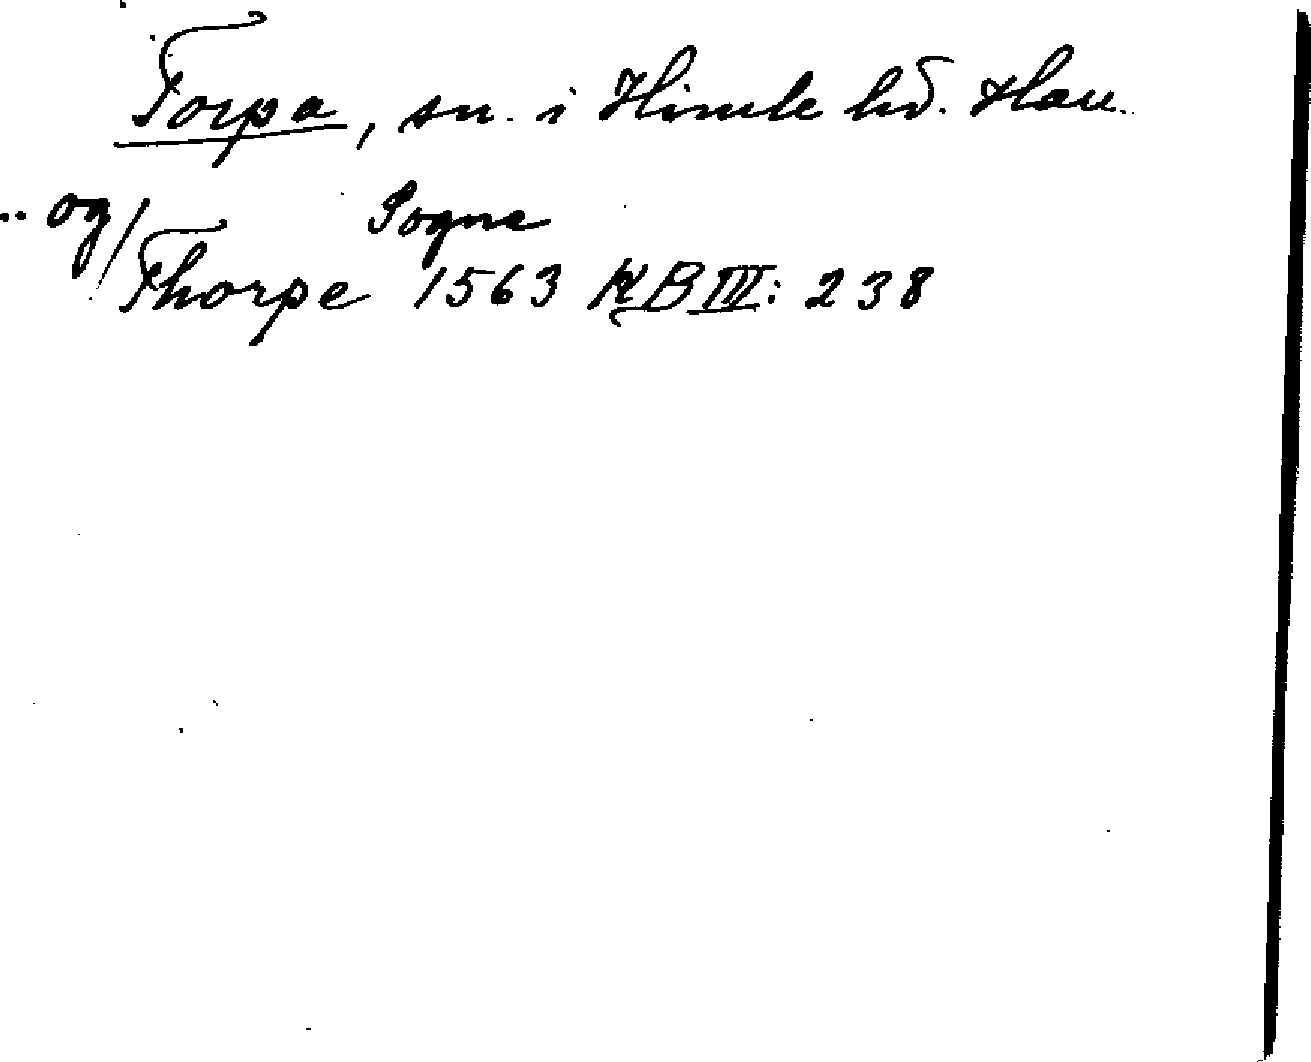 Torpa, sn. i Himle hd. Hall.
.. og/ Sogne
Thorpe 1563 KB III: 238